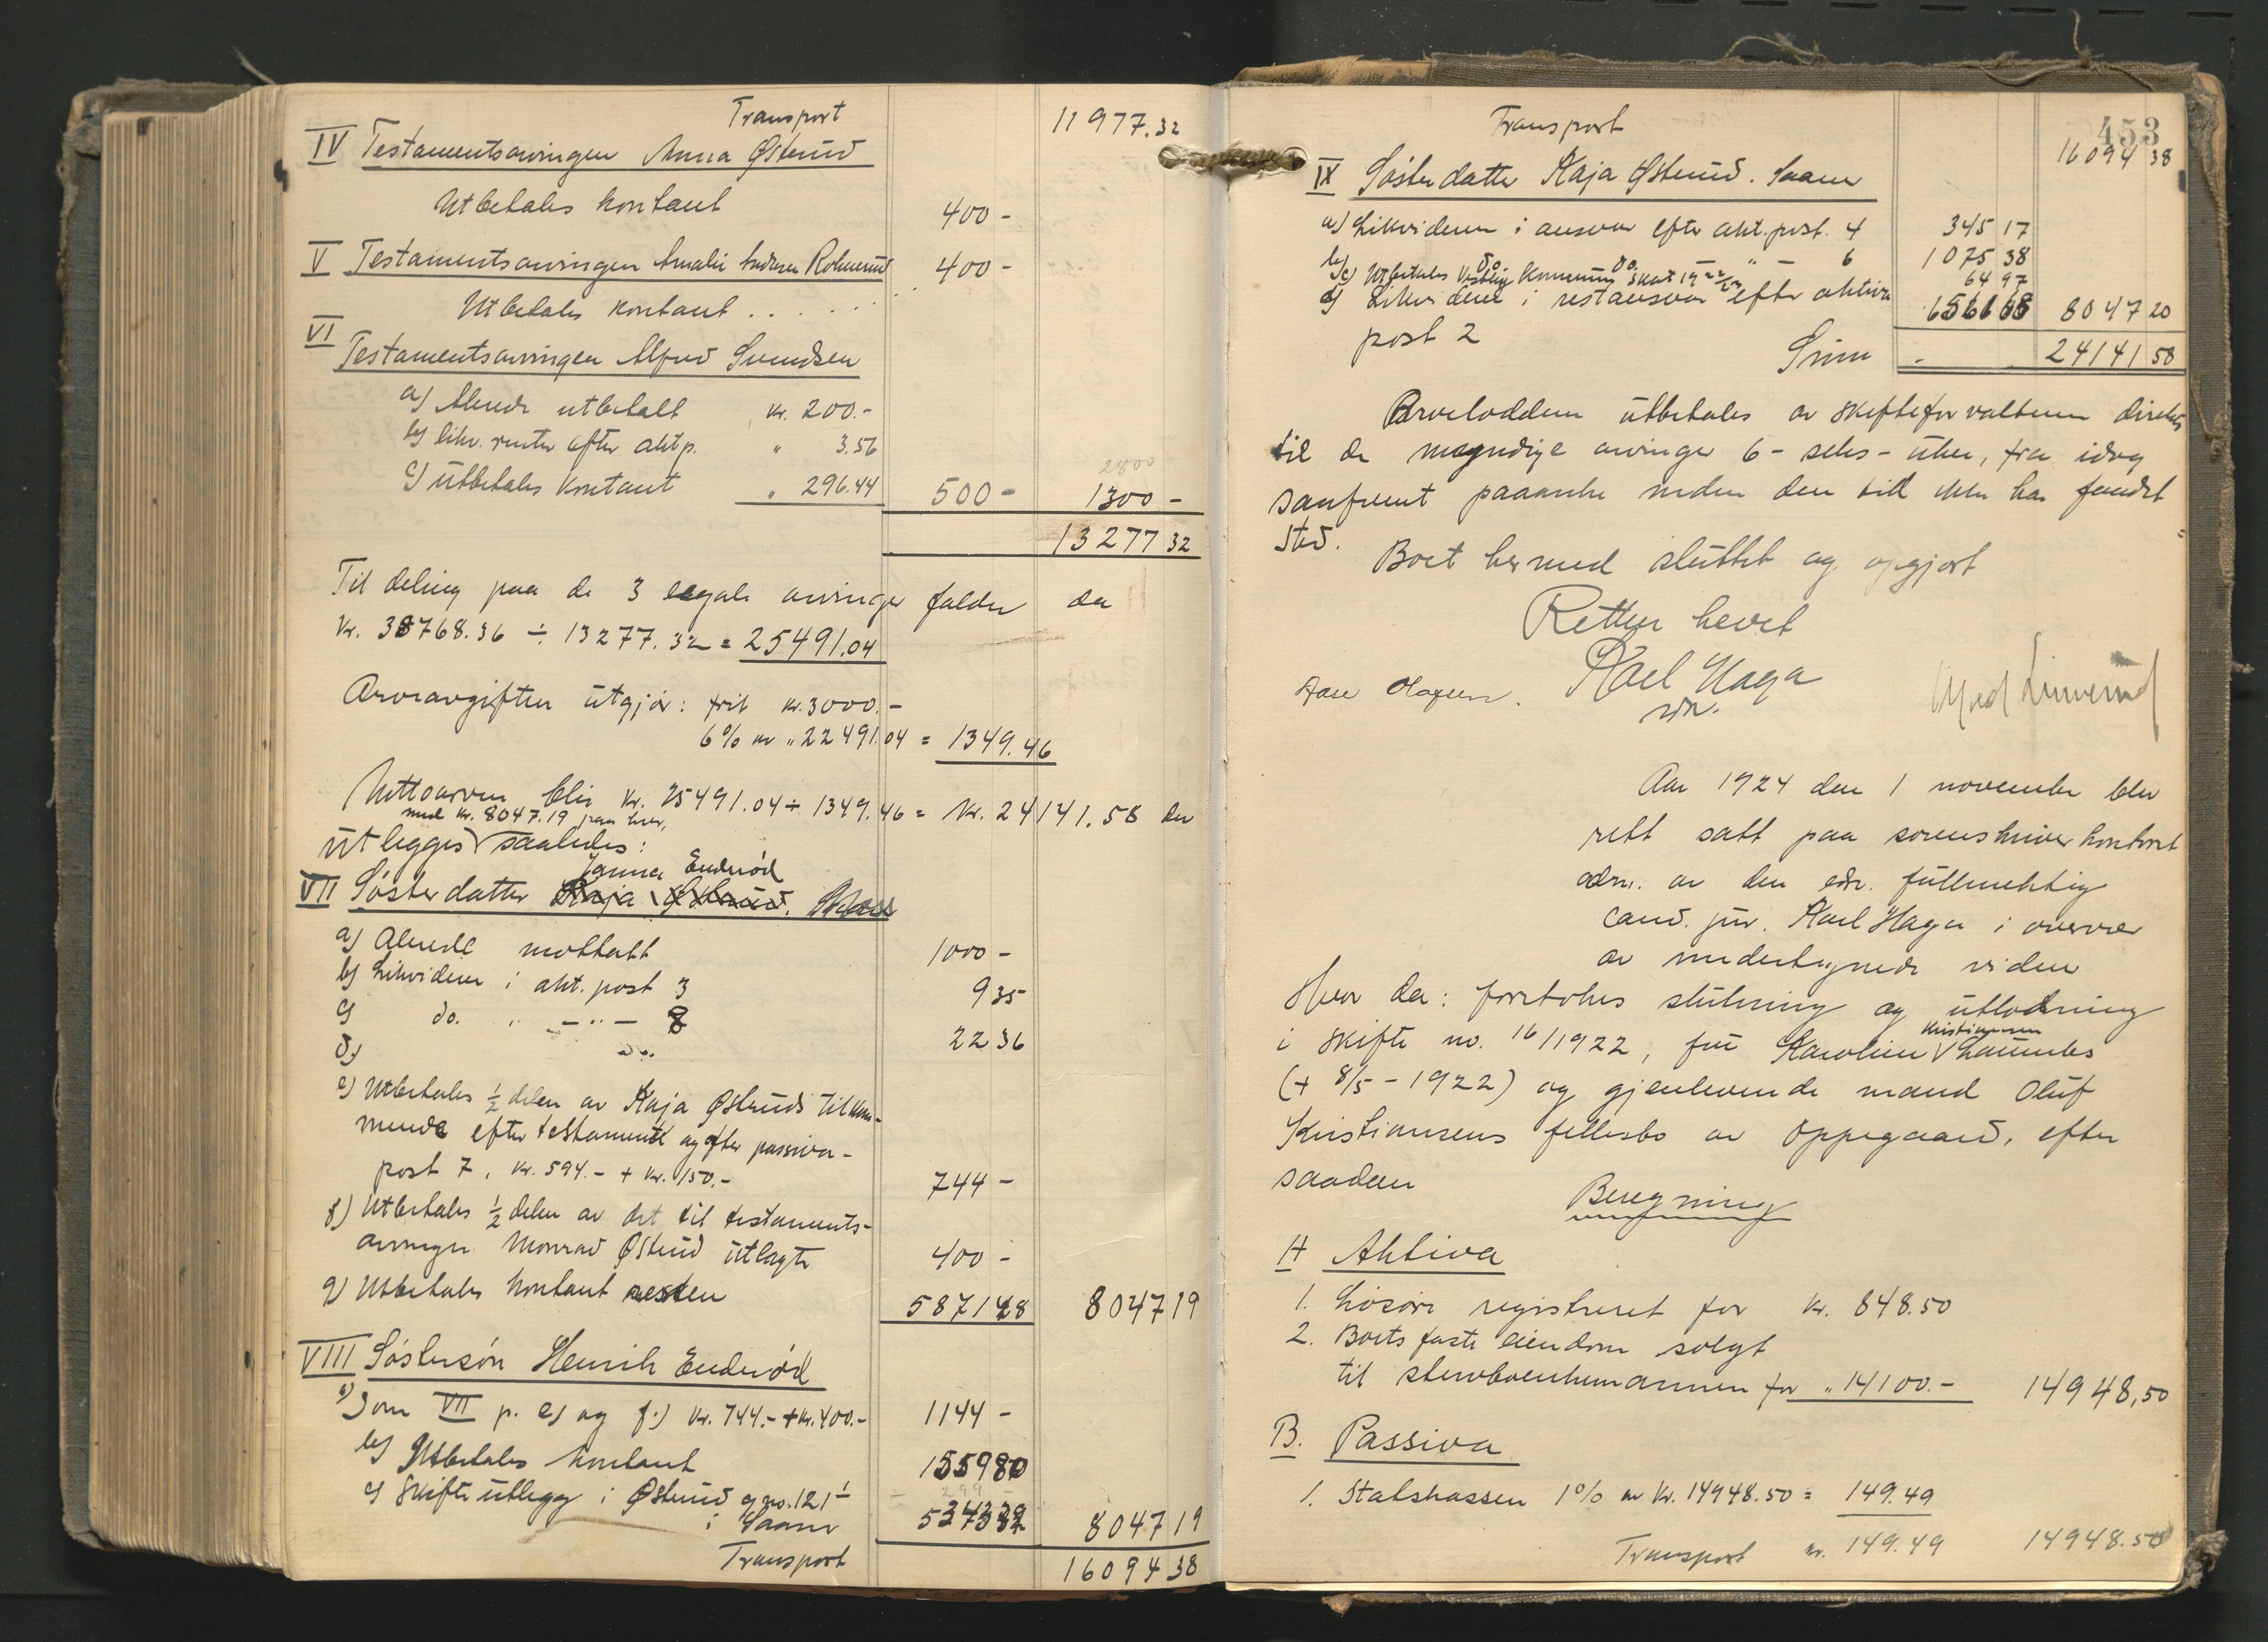 Transport 11977.32
IV Testamentsarvingen Anna Østerud
Utbetales kontant 400 -
V Testamentsarvingen Amalie Andersen Rolnerud 400 -
Utbetales kontant . . . . .
VI
Testamentsarvingen Alfred Svendsen
a) Alerede utbetalt kr. 200.-
b) likv. renter efter aktp. " 3.56
c) Utbetales kontant " 296.44 500 - 1300 -
13277 32
Til deling paa de 3 legale arvinger falder da
kr. 38768.36 ÷ 13277.32 = 25491.04
Arveavgiften utgjør: frit kr. 3000.-
6% av " 22491.04 = 1349.46
Nettoarven blir kr. 25491.04 ÷ 1349.46 = kr. 24141.58 der
med kr. 8047.19 paa hver,
utlegges saaledes:
Janna Enderød
VII Søsterdatter Kaja Østerud.
a) Alerede mottatt 1000 -
b) Likviderer i akt. post 3 935
c) do. " - " - 8 2236
d)
e) Utbetales ½ delen av Kaja Østeruds tilkom-
mende efter testamente og efter passiva-
post 7, kr. 594.- + kr. 150.- 744 -
f) Utbetales ½ delen av det til testaments-
arvingen Monrad Østerud utlagte 400 -
g) Utbetales kontant resten 5871 48 8047 19
VIII Søstersøn Henrik Enderød
a) Som VII p. e) og f.) kr. 744.- + kr. 400.- 1144 -
b) Utbetales kontant 1559 80
c) Skifteutlegg i Østerud g.no. 121/1
i Saaner 5343 39 8047 19
Transport 16094 38
453
Transport 16094 38
IX Søsterdatter Kaja Østerud. Saaner
a) Likviderer i ansvar efter akt. post. 4 345 17
b) do do. - " - 6 1075 38
c) Utbetales Vestby kommune skat 19 22/23 64 97
d) Likviderer i restansvar efter aktiva 6561 68 8047 20
post 2
Sum 24141 58
Arveloddene utbetales av skifteforvalteren direkte
til de myndige arvinger 6 - seks - uker, fra idag
saafremt paaanke inden den tid ikke har fundet
sted.
Boet hermed sluttet og opgjort
Retten hevet
Karl Haga
edv.
Aar 1924 den 1 november blev
rett satt paa sorenskriverkontoret
adm. av den edv. fuldmektig
cand. jur. Karl Haga i overvær
av undertegnede vidner
Hvor da: foretokes slutning og utlodning
Kristiansen
i skifte no. 16/1922, fru Karoline Launles
(+ 8/5 - 1922) og gjenlevende mand Oluf
Kristiansens fellesbo av Oppegaard, efter
saadan
Beregning
A Aktiva
1. Løsøre registreret for kr. 848.50
2. Boets faste eiendom solgt
til stervboenkemannen for " 14100.- 14948,50
B. Passiva
1. Statskassen 1% av kr. 14948.50 = 149.49
Transport kr. 149.49 14948.50